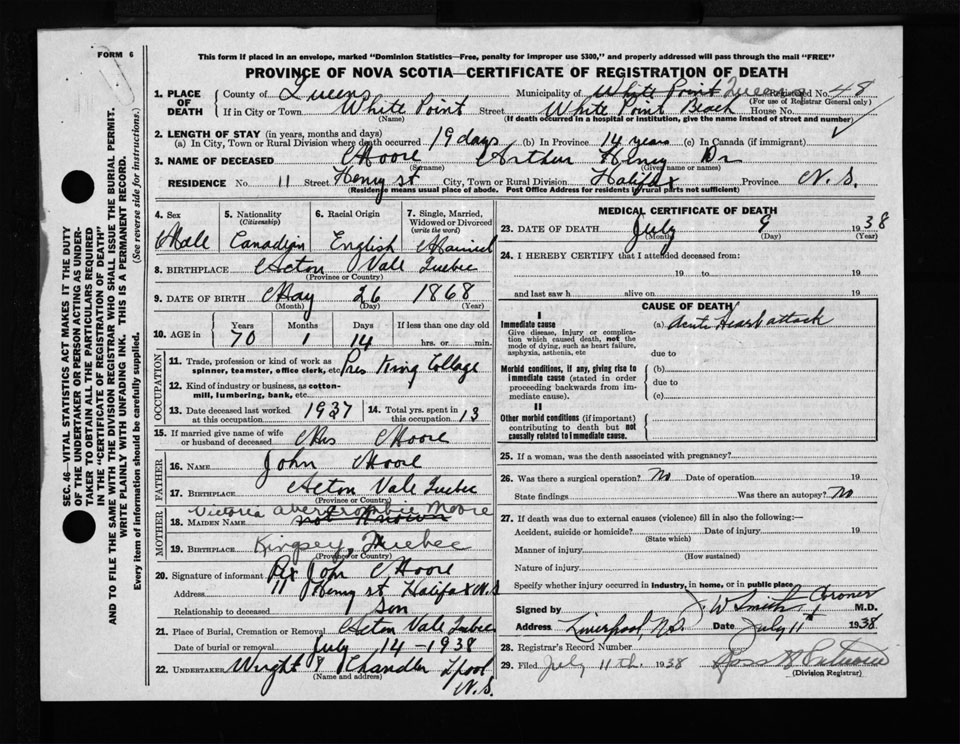 FORM 6
This form if placed in an envelope, marked "Dominion Statistics—Free, penalty for improper use $300," and properly addressed will pass through the mail "FREE"
PROVINCE OF NOVA SCOTIA—CERTIFICATE OF REGISTRATION OF DEATH
1. PLACE OF DEATH
County of Queens Municipality of White Point Queens Registered No. 48
(For use of Registrar General only)
If in City or Town White Point Street White Point Beach House No.
(Name) (If death occurred in a hospital or institution, give the name instead of street and number)
2. LENGTH OF STAY (in years, months and days)
(a) In City, Town or Rural Division where death occurred 19 days (b) In Province 14 years (c) In Canada (if immigrant)
3. NAME OF DECEASED Moore Arthur Henry Dr
(Surname) (Given name or names)
RESIDENCE No. 11 Street Henry st City, Town or Rural Division Halifax Province N.S.
(Residence means usual place of abode. Post Office Address for residents in rural parts not sufficient)
4. Sex Male
5. Nationality (Citizenship) Canadian
6. Racial Origin English
7. Single, Married, Widowed or Divorced (write the word) Married
8. BIRTHPLACE Acton Vale Quebec
(Province or Country)
9. DATE OF BIRTH May 26 1868
(Month) (Day) (Year)
10. AGE in Years 70 Months 1 Days 14 If less than one day old hrs. or min.
OCCUPATION
11. Trade, profession or kind of work as spinner, teamster, office clerk, etc. Pres King Collage
12. Kind of industry or business, as cotton-mill, lumbering, bank, etc.
13. Date deceased last worked at this occupation 1937
14. Total yrs. spent in this occupation 13
15. If married give name of wife or husband of deceased Mrs Moore
FATHER
16. NAME John Moore
17. BIRTHPLACE Acton Vale Quebec
(Province or Country)
MOTHER
Victoria Abercrombie Moore
18. MAIDEN NAME not Known
19. BIRTHPLACE Kingsey, Quebec
(Province or Country)
20. Signature of informant Rex John Moore
Address 11 Henry st Halifax N.S
Relationship to deceased Son
21. Place of Burial, Cremation or Removal Acton Vale Quebec
Date of burial or removal July 14-1938
22. UNDERTAKER Wright & Chandler Lpool N.S.
MEDICAL CERTIFICATE OF DEATH
23. DATE OF DEATH July 9 1938
(Month) (Day) (Year)
24. I HEREBY CERTIFY that I attended deceased from:
19 to 19
and last saw h alive on 19
CAUSE OF DEATH
I
Immediate cause
Give disease, injury or complication which caused death, not the mode of dying, such as heart failure, asphyxia, asthenia, etc
(a) Acute Heart attack
due to
Morbid conditions, if any, giving rise to immediate cause (stated in order proceeding backwards from immediate cause).
(b)
due to
(c)
II
Other morbid conditions (if important) contributing to death but not causally related to immediate cause.
25. If a woman, was the death associated with pregnancy?
26. Was there a surgical operation? No Date of operation 19
State findings Was there an autopsy? No
27. If death was due to external causes (violence) fill in also the following:—
Accident, suicide or homicide? Date of injury 19
(State which)
Manner of injury
(How sustained)
Nature of injury
Specify whether injury occurred in industry, in home, or in public place
Signed by J. W Smith, Coroner M.D.
Address Liverpool N.S. Date July 11th 1938
28. Registrar's Record Number
29. Filed July 11th. 1938
(Division Registrar)
SEC. 46—VITAL STATISTICS ACT MAKES IT THE DUTY OF THE UNDERTAKER OR PERSON ACTING AS UNDERTAKER TO OBTAIN ALL THE PARTICULARS REQUIRED IN THE "CERTIFICATE OF REGISTRATION OF DEATH" AND TO FILE THE SAME WITH THE DIVISION REGISTRAR WHO SHALL ISSUE THE BURIAL PERMIT.
WRITE PLAINLY WITH UNFADING INK. THIS IS A PERMANENT RECORD.
Every item of information should be carefully supplied. (See reverse side for instructions).